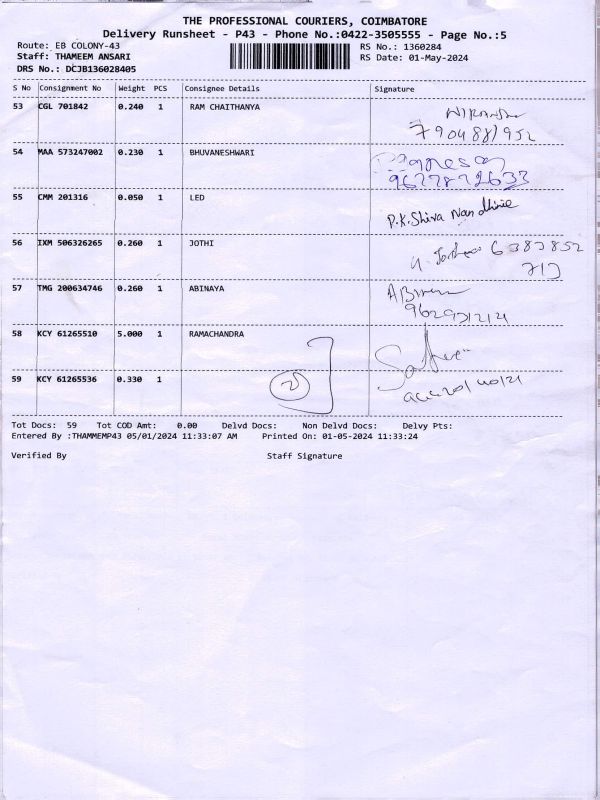 THE PROFESSIONAL COURIERS, COIMBATORE
Delivery Runsheet - P43 - Phone No.:0422-3505555 - Page No.:5
Route: EB COLONY-43 RS No.: 1360284
Staff: THAMEEM ANSARI RS Date: 01-May-2024
DRS No.: DCJB136028405
S No Consignment No Weight PCS Consignee Details Signature
53 CGL 701842 0.240 1 RAM CHAITHANYA
54 MAA 573247002 0.230 1 BHUVANESHWARI
55 CMM 201316 0.050 1 LED P.K.Shiva Nandhinie
56 IXM 506326265 0.260 1 JOTHI 6383852
713
57 TMG 200634746 0.260 1 ABINAYA
58 KCY 61265510 5.000 1 RAMACHANDRA
59 KCY 61265536 0.330 1 2
Tot Docs: 59 Tot COD Amt: 0.00 Delvd Docs: Non Delvd Docs: Delvy Pts:
Entered By :THAMMEMP43 05/01/2024 11:33:07 AM Printed On: 01-05-2024 11:33:24
Verified By Staff Signature